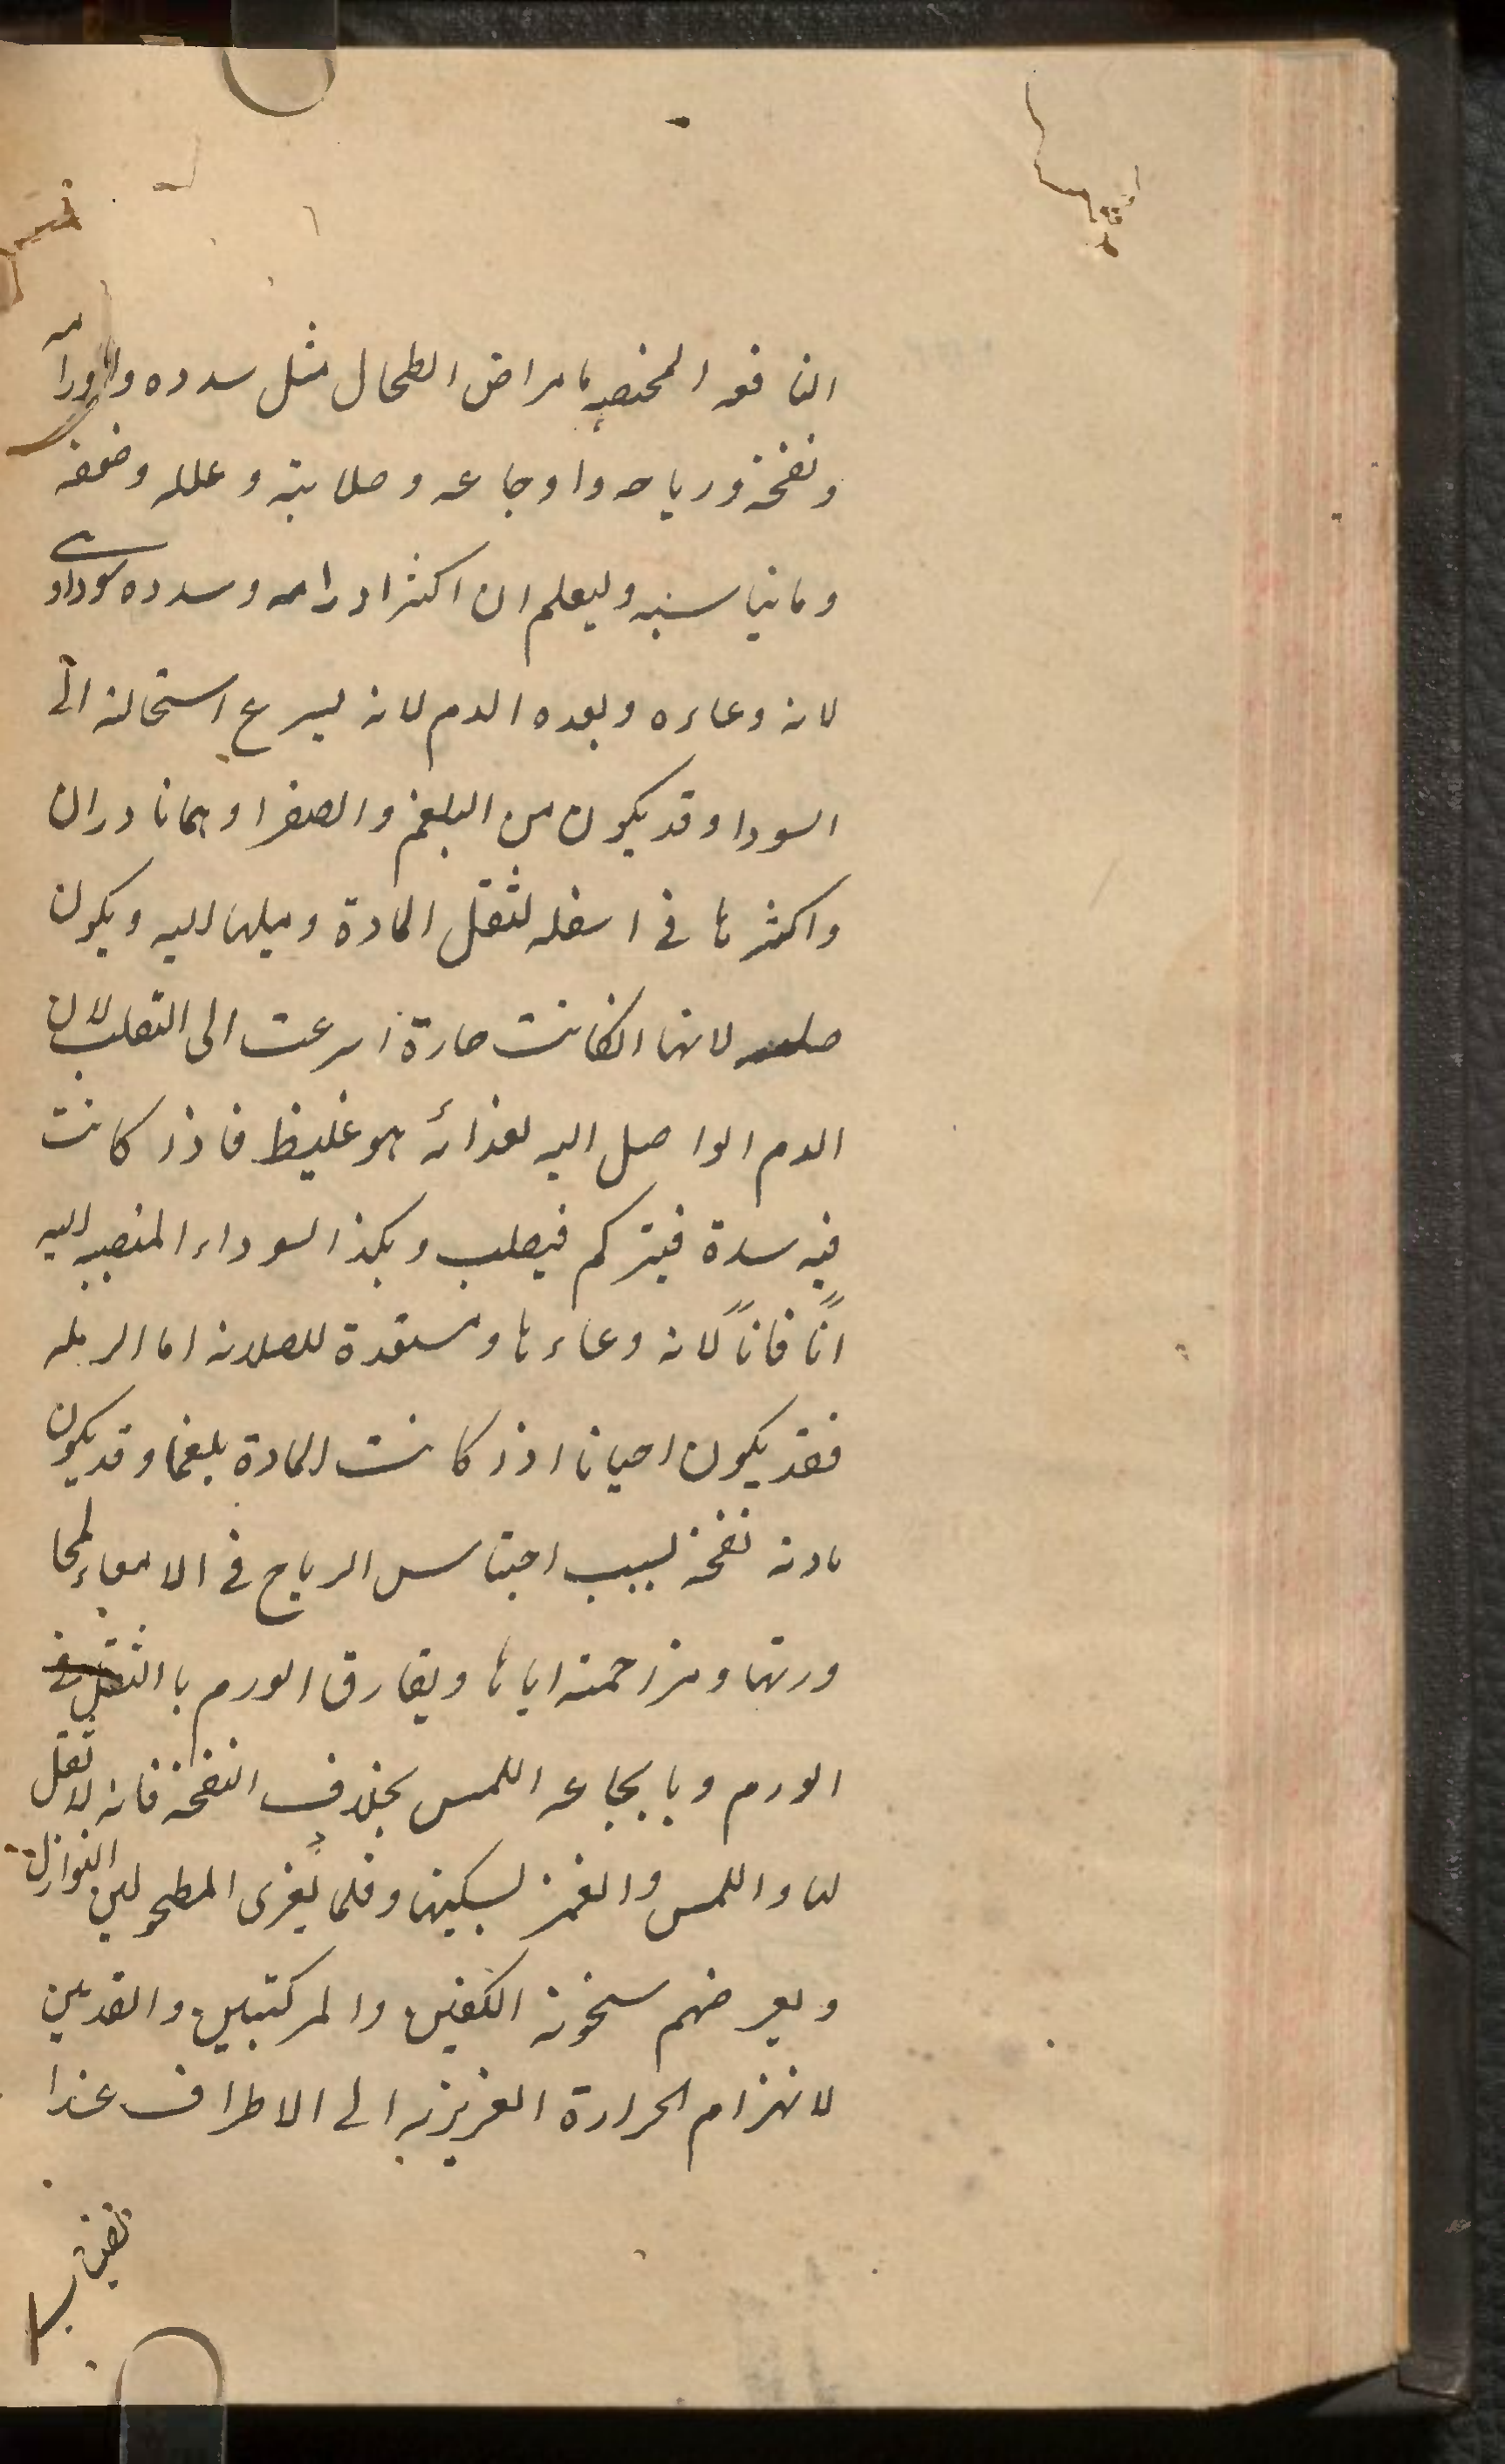 النافعه المختصه بامراض الطحال مثل سدده واورامه
ونفخة ورياحه واوجاعه وصلابته وعلله وضعفه
وما يناسبه وليعلم ان اكثر اورامه وسدده سوداوى
لانه وعاءه وبعده الدم لانه يسرع استحالته الى
السودا وقد يكون من البلغم والصفرا وهما نادران
واكثرها فى اسفله لثقل المادة وميلها اليه ويكون
لانها ان كانت حارة اسرعت الى التصلب لان
الدم الواصل اليه لغذائه هو غليظ فاذا كانت
فيه سدة فيتركم فيصلب وهكذا السوداء المنصبه اليه
انًا فانًا لانه وعاءها ومستعدة للصلابه اما الربله
فقد يكون احيانا اذا كانت المادة بلغما وقد يكون
نفخة بسبب احتباس الرياح فى الامعاء لمجا
ورتها ومزاحمته اياها ويفارق الورم بالثقل فى
الورم وبايجاعه اللمس بخلاف النفخة فانه لا ثقل
لها واللمس والغمز يسكنها وقلما يعرى المطحولين النوازل
ويعرضهم سخونة الكفين والركبتين والقدمين
لانهزام الحرارة الغريزيه الى الاطراف عندا